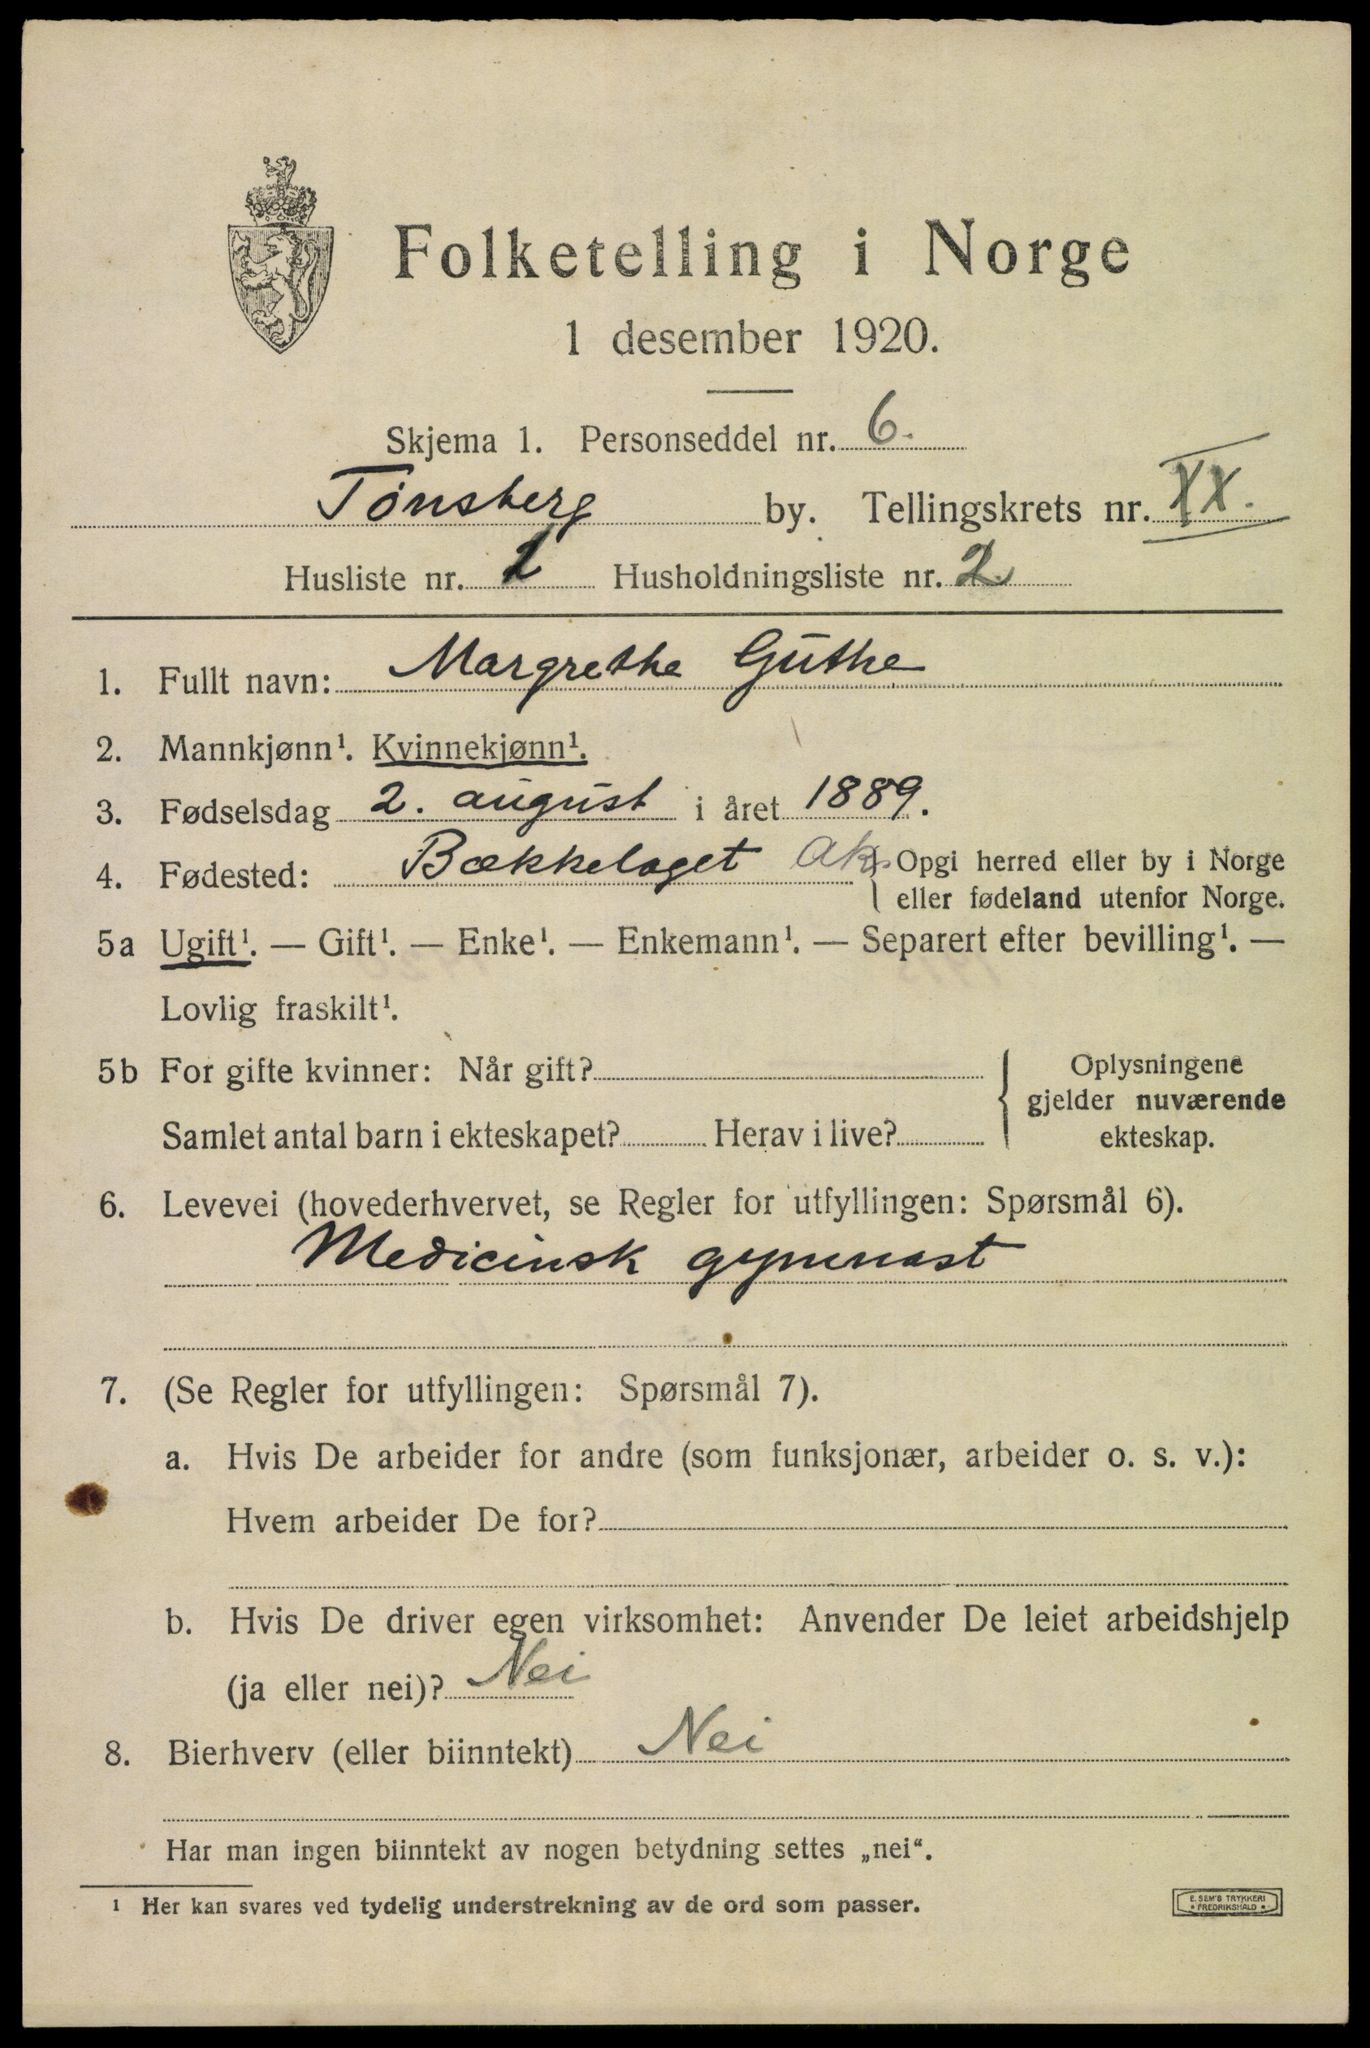 Folketelling i Norge
1 desember 1920.
Skjema 1. Personseddel nr. 6.
Tønsberg by. Tellingskrets nr. XX.
Husliste nr. 1 Husholdningsliste nr. 2
1. Fullt navn: Margrethe Guthe
2. Mannkjønn¹. Kvinnekjønn¹.
3. Fødselsdag 2. august i året 1889.
4. Fødested: Bækkelaget Ak. { Opgi herred eller by i Norge
eller fødeland utenfor Norge.
5a Ugift¹. — Gift¹. — Enke¹. — Enkemann¹. — Separert efter bevilling¹. —
Lovlig fraskilt¹.
5b For gifte kvinner: Når gift?
Samlet antal barn i ekteskapet? Herav i live?
Oplysningene
gjelder nuværende
ekteskap.
6. Levevei (hovederhvervet, se Regler for utfyllingen: Spørsmål 6).
Medicinsk gymnast
7. (Se Regler for utfyllingen: Spørsmål 7).
a. Hvis De arbeider for andre (som funksjonær, arbeider o. s. v.):
Hvem arbeider De for?
b. Hvis De driver egen virksomhet: Anvender De leiet arbeidshjelp
(ja eller nei)? Nei
8. Bierhverv (eller biinntekt) Nei
Har man ingen biinntekt av nogen betydning settes „nei“.
¹ Her kan svares ved tydelig understrekning av de ord som passer.
E. SEM'S TRYKKERI
• FREDRIKSHALD •